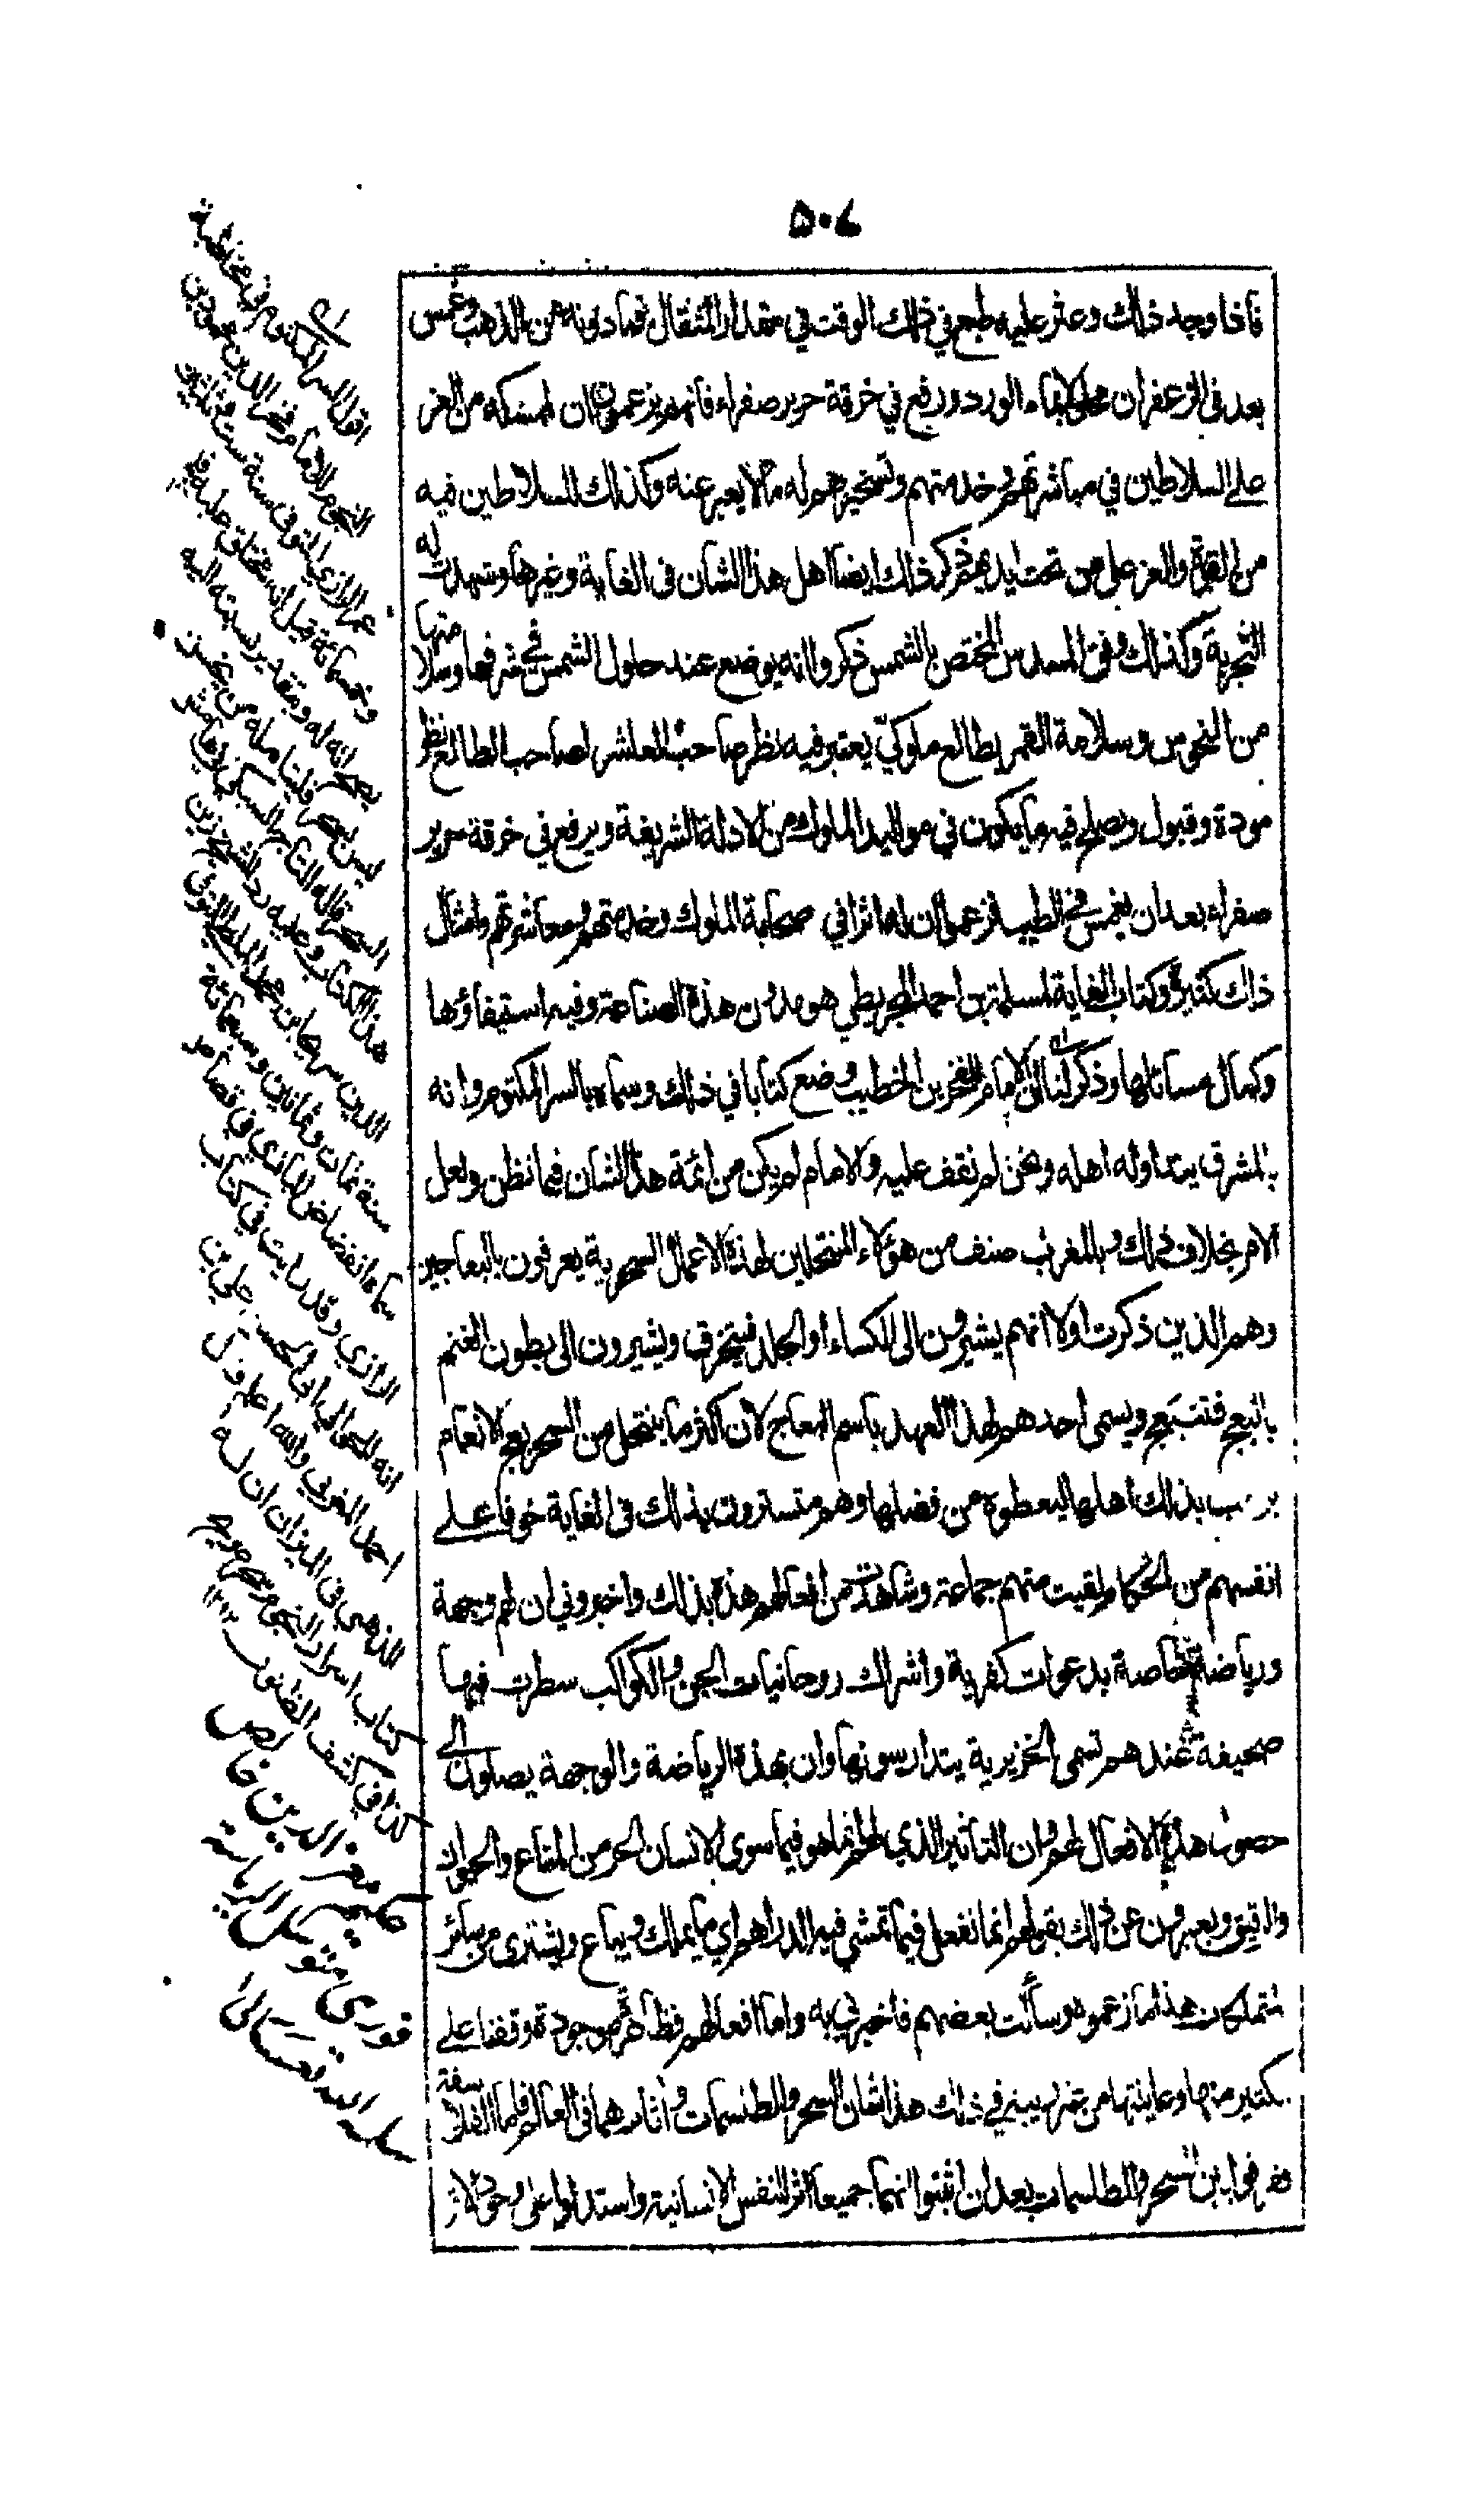 ٥٠٤
فاذا وجد ذلك وعثر عليه طبع في ذلك الوقت في مقدار المثقال فما دونه من الذهب وغمس
بعد في الزعفران محلولا بماء الورد ورفع في خرقة حرير صفراء فانهم يزعمون ان لممسكه من العز
على السلاطين في مباشرتهم وخدمتهم وتسخيرهم له ما لا يعبر عنه وكذلك للسلاطين فيه
من القوة والعز على من تحت ايديهم ذكر ذلك ايضا اهل هذا الشان في الغاية وغيرها وشهدت له
التجربة وكذلك وفق المسدس المختص بالشمس ذكروا انه يوضع عند حلول الشمس في شرفها وسلامتها
من النحوس وسلامة القمر بطالع ملوكي يعتبر فيه نظر صاحب العاشر لصاحب الطالع نظر
مودة وقبول ويصلح فيه ما يكون في مواليد الملوك من الادلة الشريفة ويرفع في خرقة حرير
صفراء بعد ان يغمس في الطيب فزعموا ان له اثرا في صحابة الملوك وخدمتهم ومعاشرتهم وامثال
ذلك كثير وكتاب الغاية لمسلمة بن احمد المجريطي هو مدون هذه الصناعة وفيه استيفاؤها
وكمال مسائلها وذكر لنا ان الامام الفخر بن الخطيب وضع كتابا في ذلك وسماه بالسر المكتوم وانه
بالمشرق يتداوله اهله ونحن لم نقف عليه والامام لم يكن من ائمة هذا الشان فيما نظن ولعل
الامر بخلاف ذلك وبالمغرب صنف من هؤلاء المنتحلين لهذه الاعمال السحرية يعرفون بالبعاجين
وهم الذين ذكرت اولا انهم يشيرون الى الكساء او الجلد فيتخرق ويشيرون الى بطون الغنم
بالبعج فتنبعج ويسمى احدهم لهذا العهد باسم البعاج لان اكثر ما ينتحل من السحر بعج الانعام
يرهب بذلك اهلها ليعطوه من فضلها وهم متسترون بذلك في الغاية خوفا على
انفسهم من الحكام لقيت منهم جماعة وشاهدت من افعالهم هذه بذلك واخبروني ان لهم وجهة
ورياضة خاصة بدعوات كفرية واشراك روحانيات الجن والكواكب سطرت فيها
صحيفة عندهم تسمى الخزيرية يتدارسونها وان بهذه الرياضة والوجهة يصلون الى
حصول هذه الافعال لهم وان التاثير الذي لهم انما هو فيما سوى الانسان الحر من المتاع والحيوان
والرقيق ويعبرون عن ذلك بقولهم انما نفعل فيما تمشي فيه الدراهم اي ما يملك ويباع ويشترى من سائر
المتملكات هذا ما زعموه وسألت بعضهم فأخبرني به واما افعالهم فظاهرة موجودة وقفنا على
الكثير منها وعاينتها من غير ريبة في ذلك هذا شان السحر والطلسمات وآثارهما في العالم فاما الفلاسفة
ففرقوا بين السحر والطلسمات بعد ان اثبتوا انهما جميعا اثر للنفس الانسانية واستدلوا على وجود الاثر
اقول السر المكتوم في مخاطبة
النجوم للامام فخر الدين محمد بن
عمر الرازي المتوفى سنة ست
وخمسمائة قيل انه مختلق عليه
يصح انه له
هذا الكتاب وعليه رد للشيخ زين
الدين سريجا بن محمد الملطي المتوفى
سنة ثمان وثمانين وسبعمائة
سماه انقضاض البازي في
الرازي وقد رأيت في كتاب
انه للحرالي ابي الحسن علي بن
احمد المغربي والله اعلم
الذهبي في الميزان ان له
كتاب اسرار النجوم سحر صريح
كذا في كشف الظنون ١٢